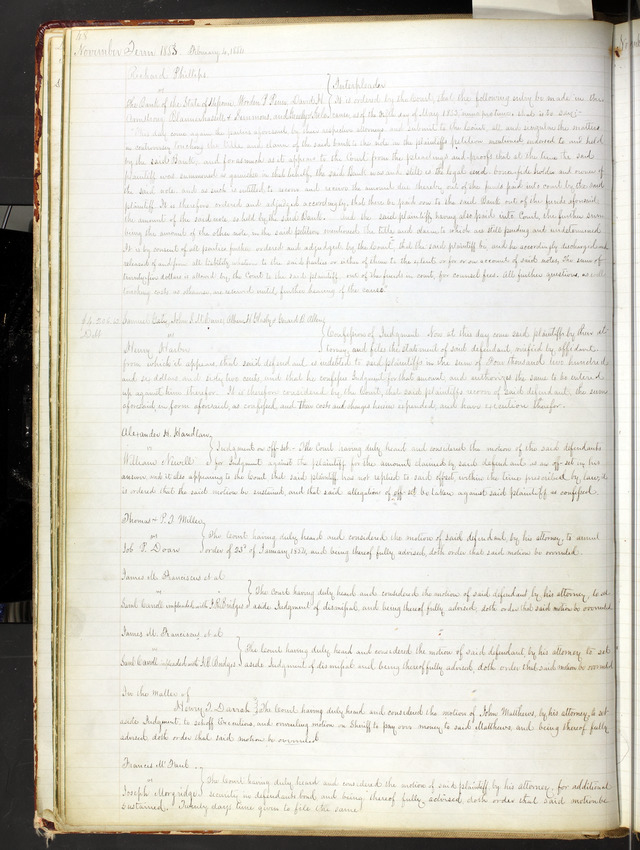 48
November Term 1853 February 4, 1854
Richard Phillips
vs Interpleader
The Bank of the State of Missouri, David H. It is ordered by the Court, that the following entry be made in this
Armstrong cause, as of the day of May 1853, to say:
This day come again the parties aforesaid, by their respective attorneys and submit to the Court, all and singular the matters
in controversy touching the title and claim of the said bank to the note in the plaintiff's petition mentioned, endorsed to and held
by the said Bank, and forasmuch as it appears to the Court from the pleadings and proofs that at the time the said
plaintiff was summoned as garnishee in that behalf, the said Bank was and still is the legal and bona fide holder and owner of
the said note, and as such is entitled to recover and receive the amount due thereby out of the funds paid into court by the said
plaintiff. It is therefore ordered and adjudged accordingly, that there be paid over to the said Bank out of the funds aforesaid,
the amount of the said note so held by the said Bank. And the said plaintiff having also paid into Court, the further sum
being the amount of the other note in the said petition mentioned, the title and claim to which are still pending and undetermined
It is by consent of all parties further ordered and adjudged by the Court, that the said plaintiff be, and he accordingly discharged and
released of and from all liability whatever to the said parties or either of them to the extent or for or on account of said notes, The sum of
twenty five dollars is allowed by the Court to the said plaintiff, out of the funds in court, for counsel fees. All further questions, as well
touching costs as otherwise are reserved until further hearing of the cause
Samuel John
Debt vs Confession of Judgment Now at this day come said plaintiffs by their at-
Henry torney, and files the statement of said defendant, verified by affidavit,
from which it appears that said defendant is indebted to said plaintiffs in the sum of Four thousand two hundred
and six dollars and sixty two cents, and that he confesses Judgment for that amount and authorizes the same to be entered
up against him therefor. It is therefore considered by the Court, that said plaintiffs recover of said defendant, the sum
aforesaid in form aforesaid, as confessed, and their costs and charges herein expended, and have execution therefor.
Alexander H. Handlan
vs Judgment on off set - The Court having duly heard and considered the motion of the said defendants
William Newell for Judgment against the plaintiff for the amount claimed by said defendant as an off-set in his
answer and it also appearing to the Court that said plaintiff has not replied to said offset, within the time prescribed by law, it
is ordered that the said motion be sustained and that said allegation of off set be taken against said plaintiff as confessed.
Thomas & P. T. Miller
vs The Court having duly heard and considered the motion of said defendant, by his attorney to annul
Job P. Doan order of 23d of January 1854, and being thereof fully advised, doth order that said motion be overruled.
James M. Franciscus et al
vs The Court having duly heard and considered the motion of said defendant, by his attorney, to set
Saml Cavott impleaded with Bridges aside Judgment of dismissal, and being thereof fully advised, doth order that said motion be overruled
James M. Franciscus et al
vs The Court having duly heard and considered the motion of said defendant, by his attorney to set
Saml Cavott impleaded with Bridges aside Judgment of dismissal and being thereof fully advised, doth order that said motion be overruled
In the matter of
Henry T. Darrah The Court having duly heard and considered the motion of John Matthews, by his attorney, to set
aside Judgment to set off Executions, and overruling motion on Sheriff to pay over money to said Matthews, and being thereof fully
advised doth order that said motion be overruled
Francis M.
vs The Court having duly heard and considered the motion of said plaintiff by his attorney, for additional
Joseph Morgridge security on defendants bond and being thereof fully advised, doth order that said motion be
sustained. Twenty days time given to file the same